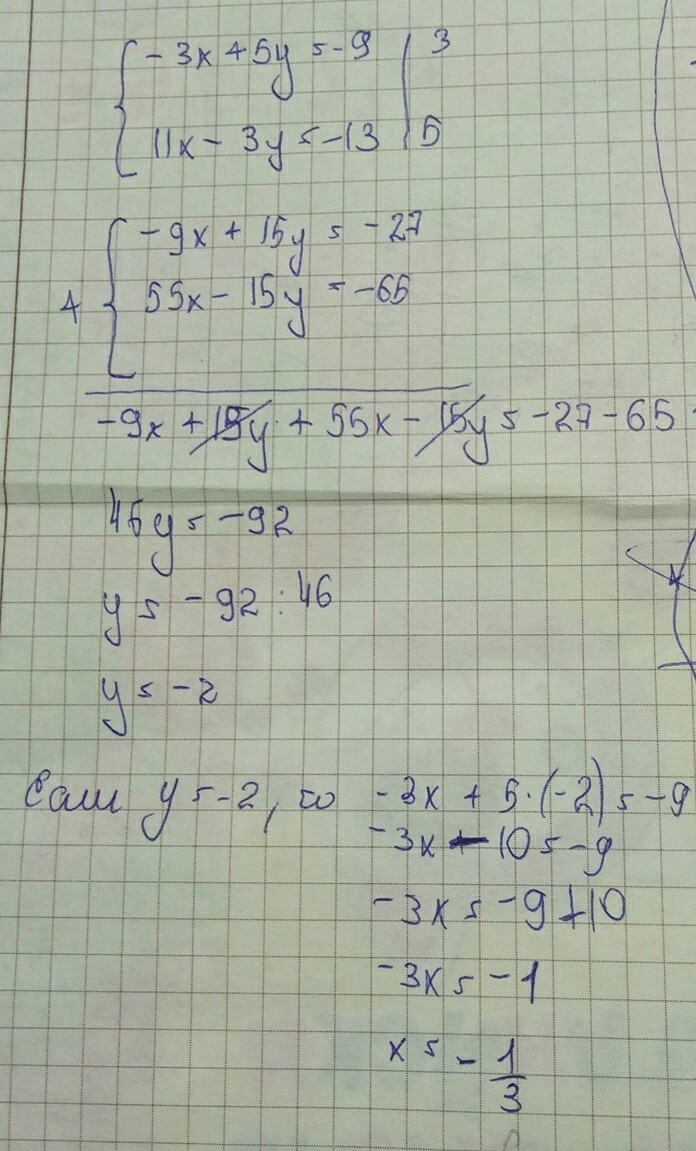 -3x + 5y = -9 | 3
11x - 3y = -13 | 5
-9x + 15y = -27
+
55x - 15y = -65
-9x + 15y + 55x - 15y = -27 - 65
46y = -92
y = -92 : 46
y = -2
Если y = -2, то -3x + 5·(-2) = -9
-3x - 10 = -9
-3x = -9 + 10
-3x = -1
x = -1/3